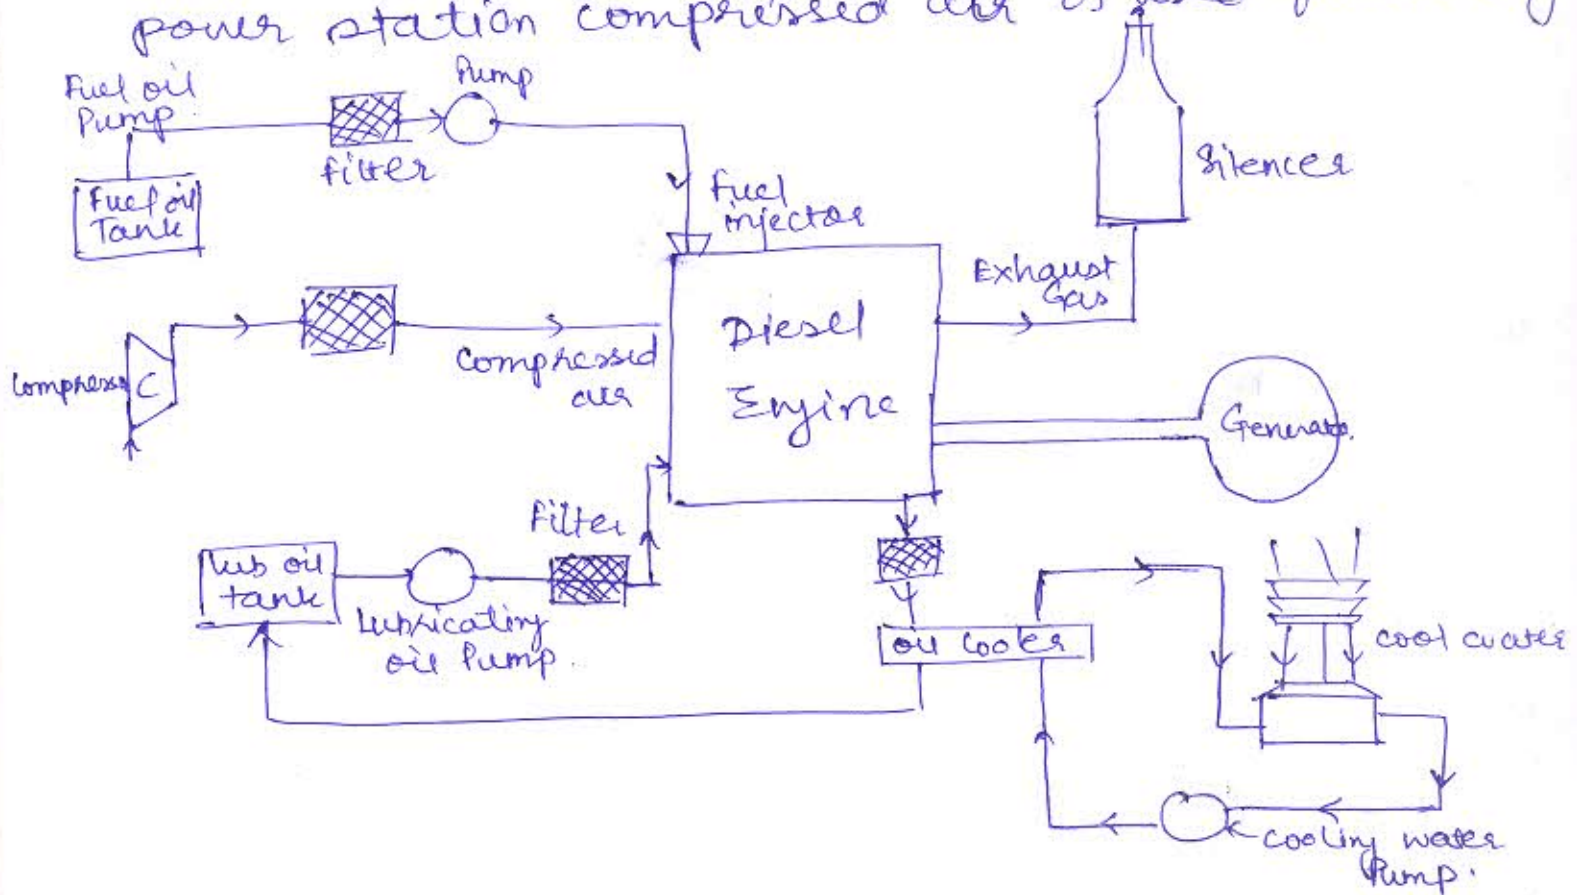 power station compressed air is
Fuel oil
Pump
Pump
filter
Fuel oil
Tank
Fuel
injector
Silencer
Exhaust
Gas
Diesel
Engine
Compressed
air
Compress
C
Generato.
filter
Lub oil
tank
Lubricating
oil Pump.
oil Cooler
cool water
cooling water
Pump.